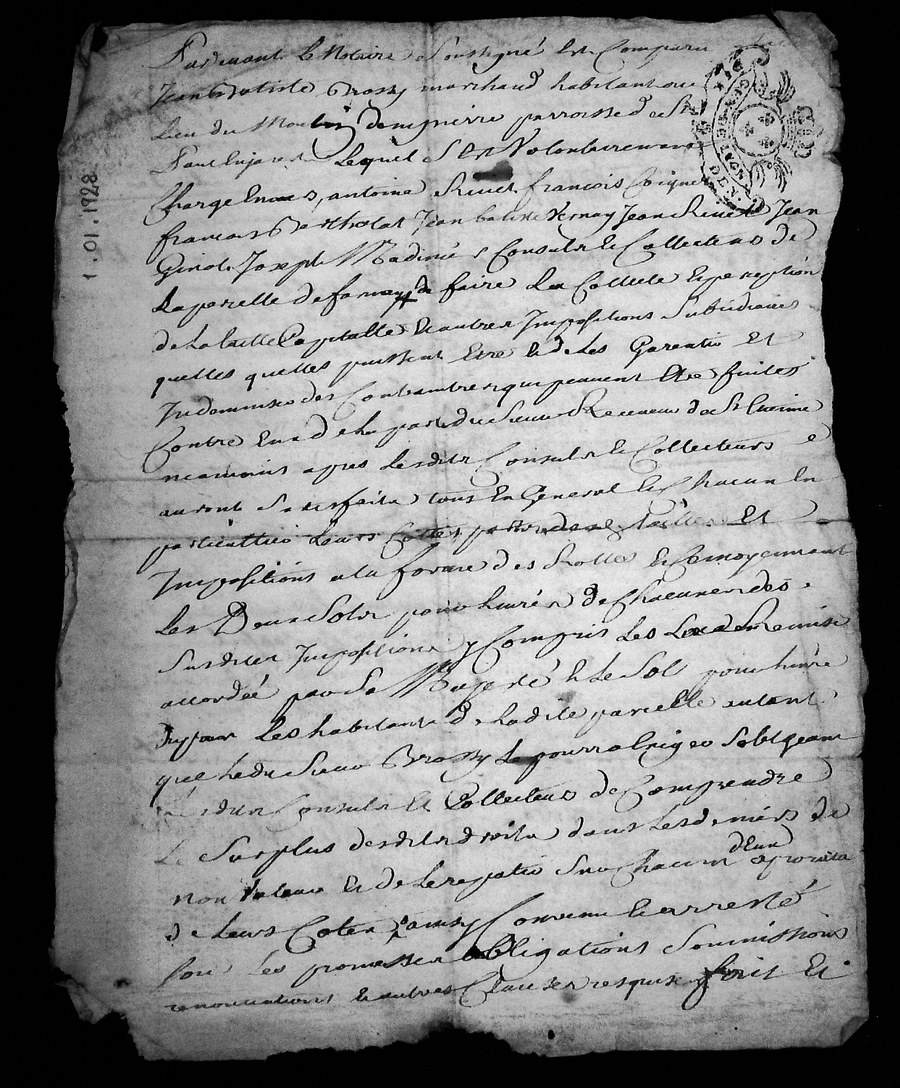 Pardevant Le Notaire Soussigné Est Comparu
Jean Baptiste Brossy marchand habitant au
Lieu du Moulin dempierre parroisse de St
Paul En jarest Lequel S'est Volontairement
Charge Envers antoine Rivet francois Coignet
francois Bertholat Jean batiste Vernay Jean Rivet Jean
Ginot Joseph Madinié Consuls Et Collecteurs de
La parcelle de farnay de faire La Collecte Et perception
de La taille Capitalle Et autres Impositions Subsidiaires
quelles quelles puissent Etre Et de Les Garentir Et
Indemniser des Contraintes qui peuvent Etre faites
Contre Eux de La part du Sieur Receveur de St Etienne
neanmoins apres Lesdits Consuls Et Collecteurs
auront Satisfait tous En General Et Chacun En
particulier Leurs Cottes par Tailles Et
Impositions a la forme des Rolles Et Ce moyennant
Les Deux Sols pour Livre de Chacune des
Susdites Impositions y Compris Les Remise
accordée par Sa Majesté Et Le Sol pour Livre
Du par Les habitants de Ladite parcelle autant
que Ledit Sieur Brossy Le pourra Exiger Sobligeant
Lesdits Consuls Et Collecteurs de Comprendre
Le Surplus desdits droits dans Les deniers de
non Valeur Et de Le repartir Sur Chacun deux
a prorata
de Leurs Cotes ainsy Convenu Et arresté
Sous Les promesses obligations Soumissions
renonciations Et autres Clauses requises fait Et
1.01.1728
GEN. DE LYON
DEN.